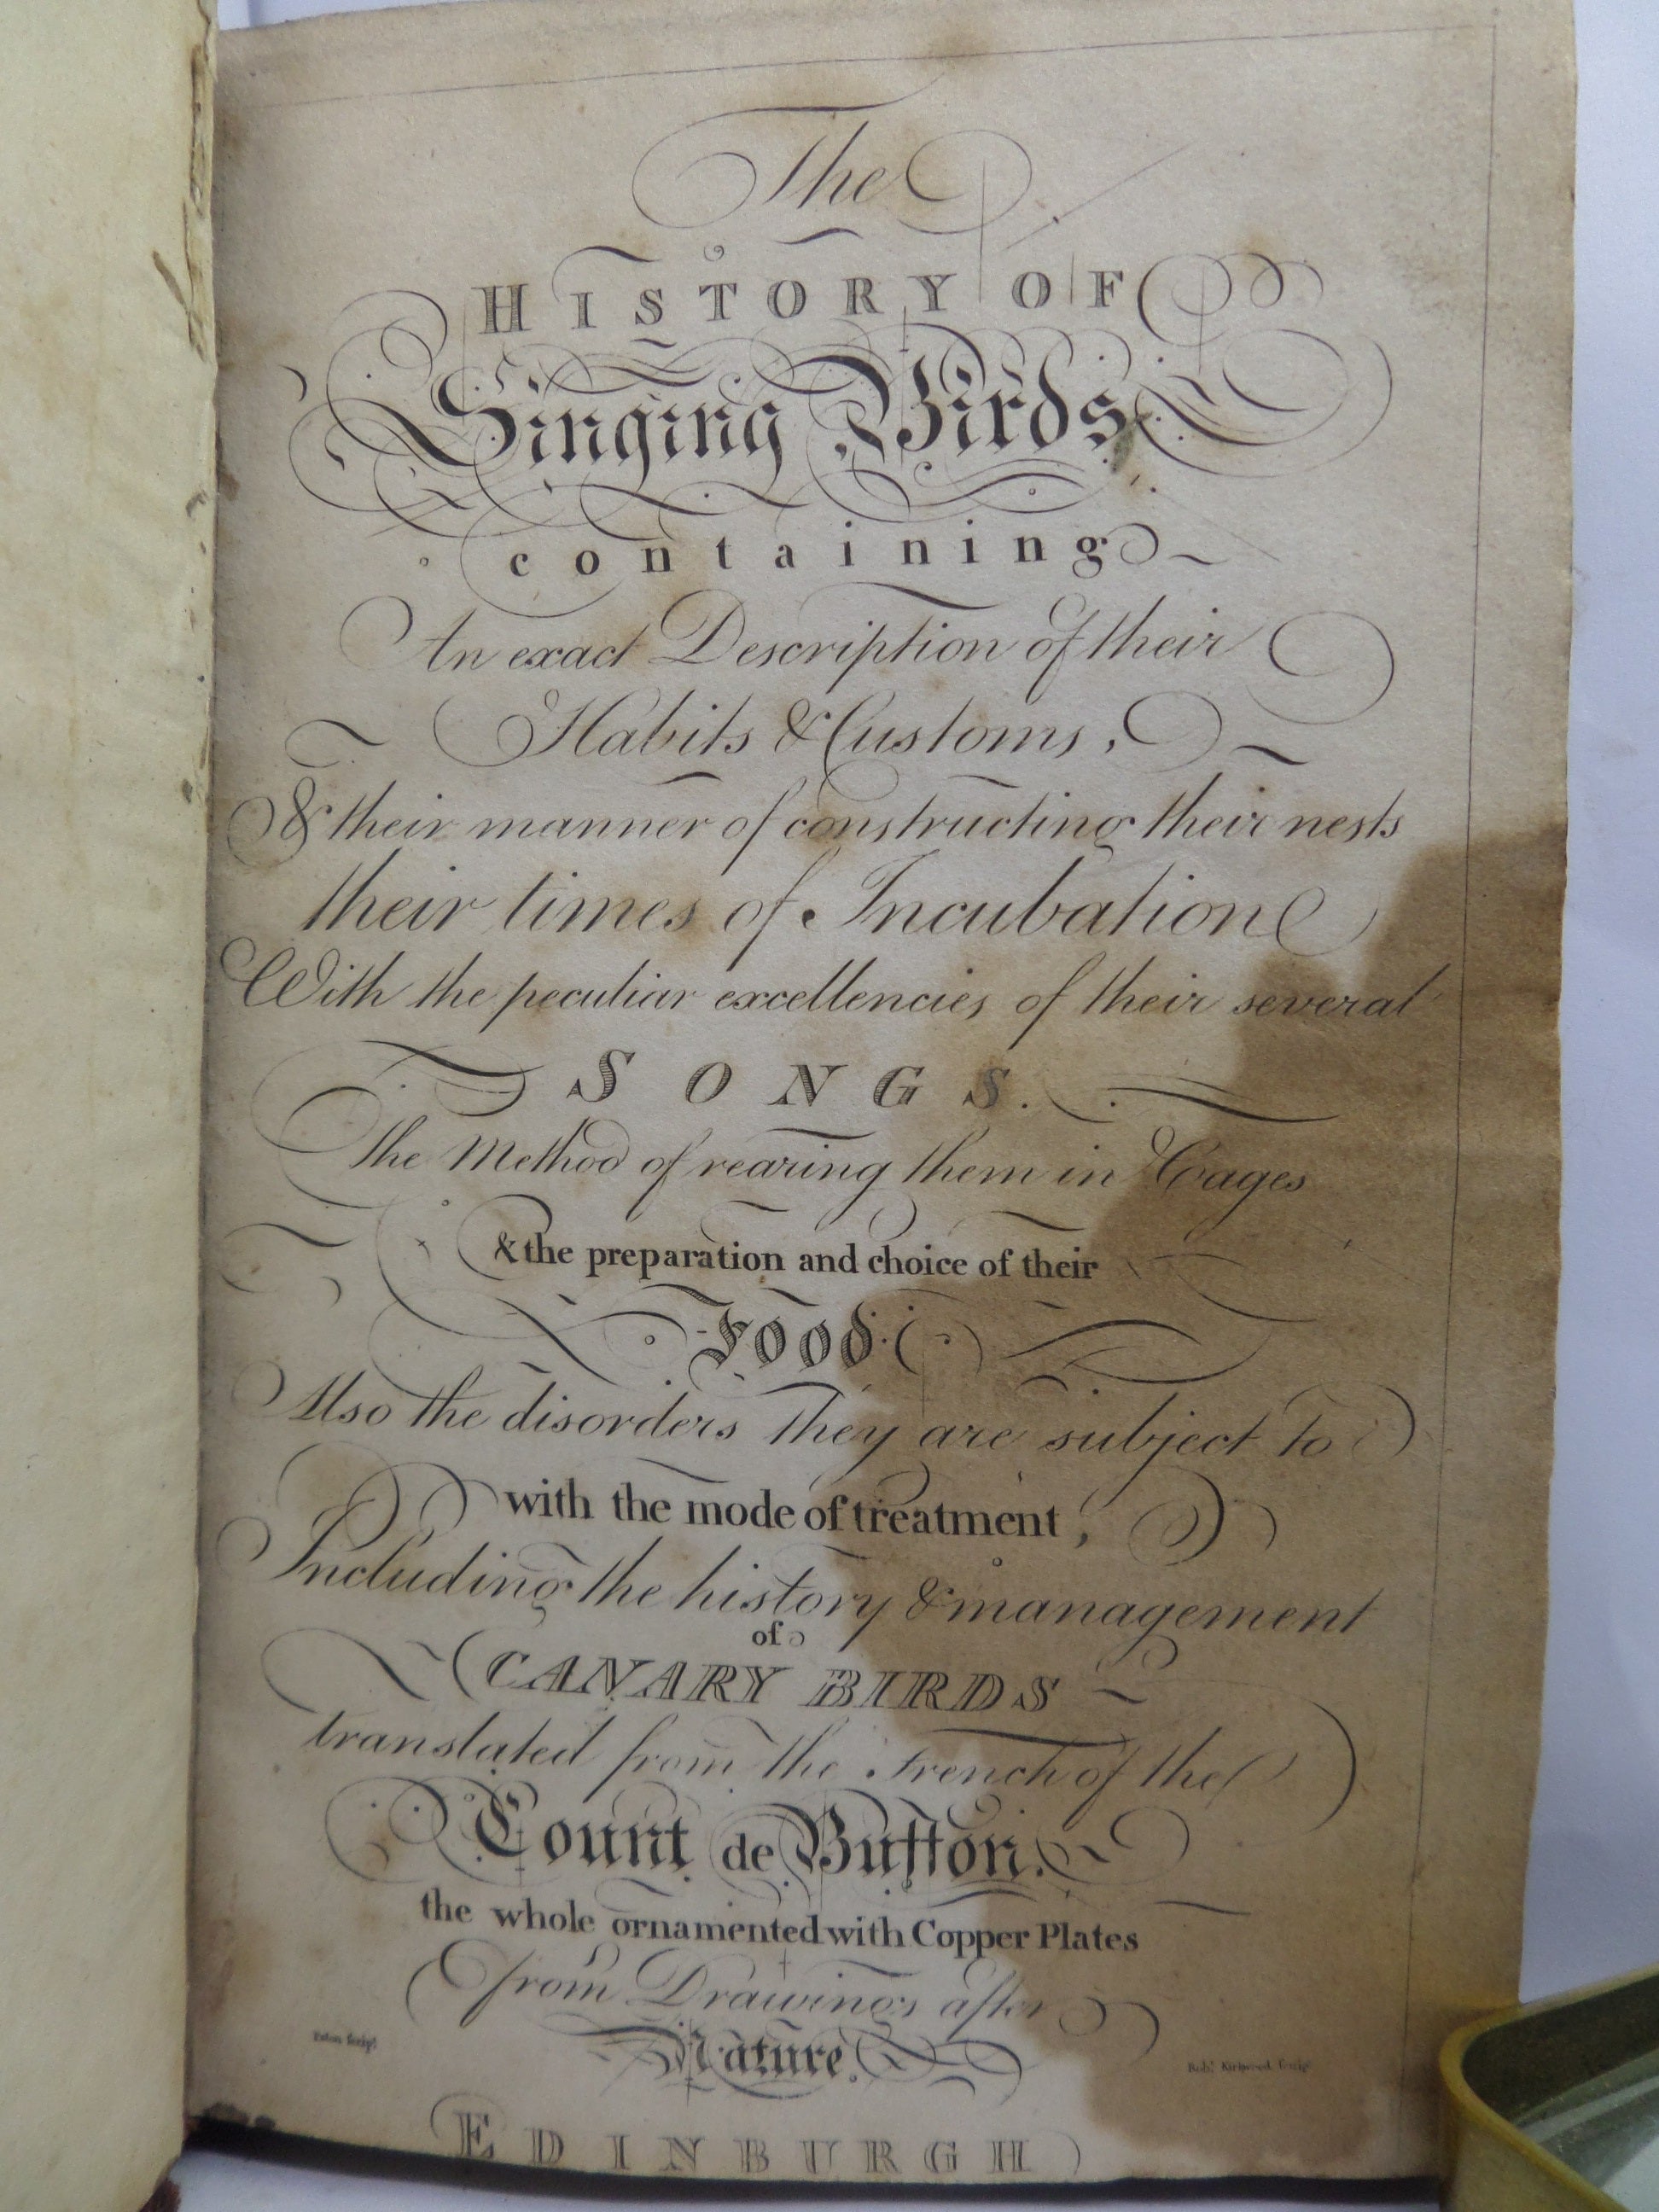 The
HISTORY OF
Singing Birds
containing
An exact Description of their
Habits & Customs,
& their manner of constructing their nests
their times of Incubation
With the peculiar excellencies of their several
SONGS.
the Method of rearing them in Cages
& the preparation and choice of their
Food.
Also the disorders they are subject to
with the mode of treatment,
Including the history & management
of
CANARY BIRDS
translated from the French of the
Count de Buffon.
the whole ornamented with Copper Plates
from Drawings after
Nature.
Robt. Kirkwood Sculpt.
EDINBURGH